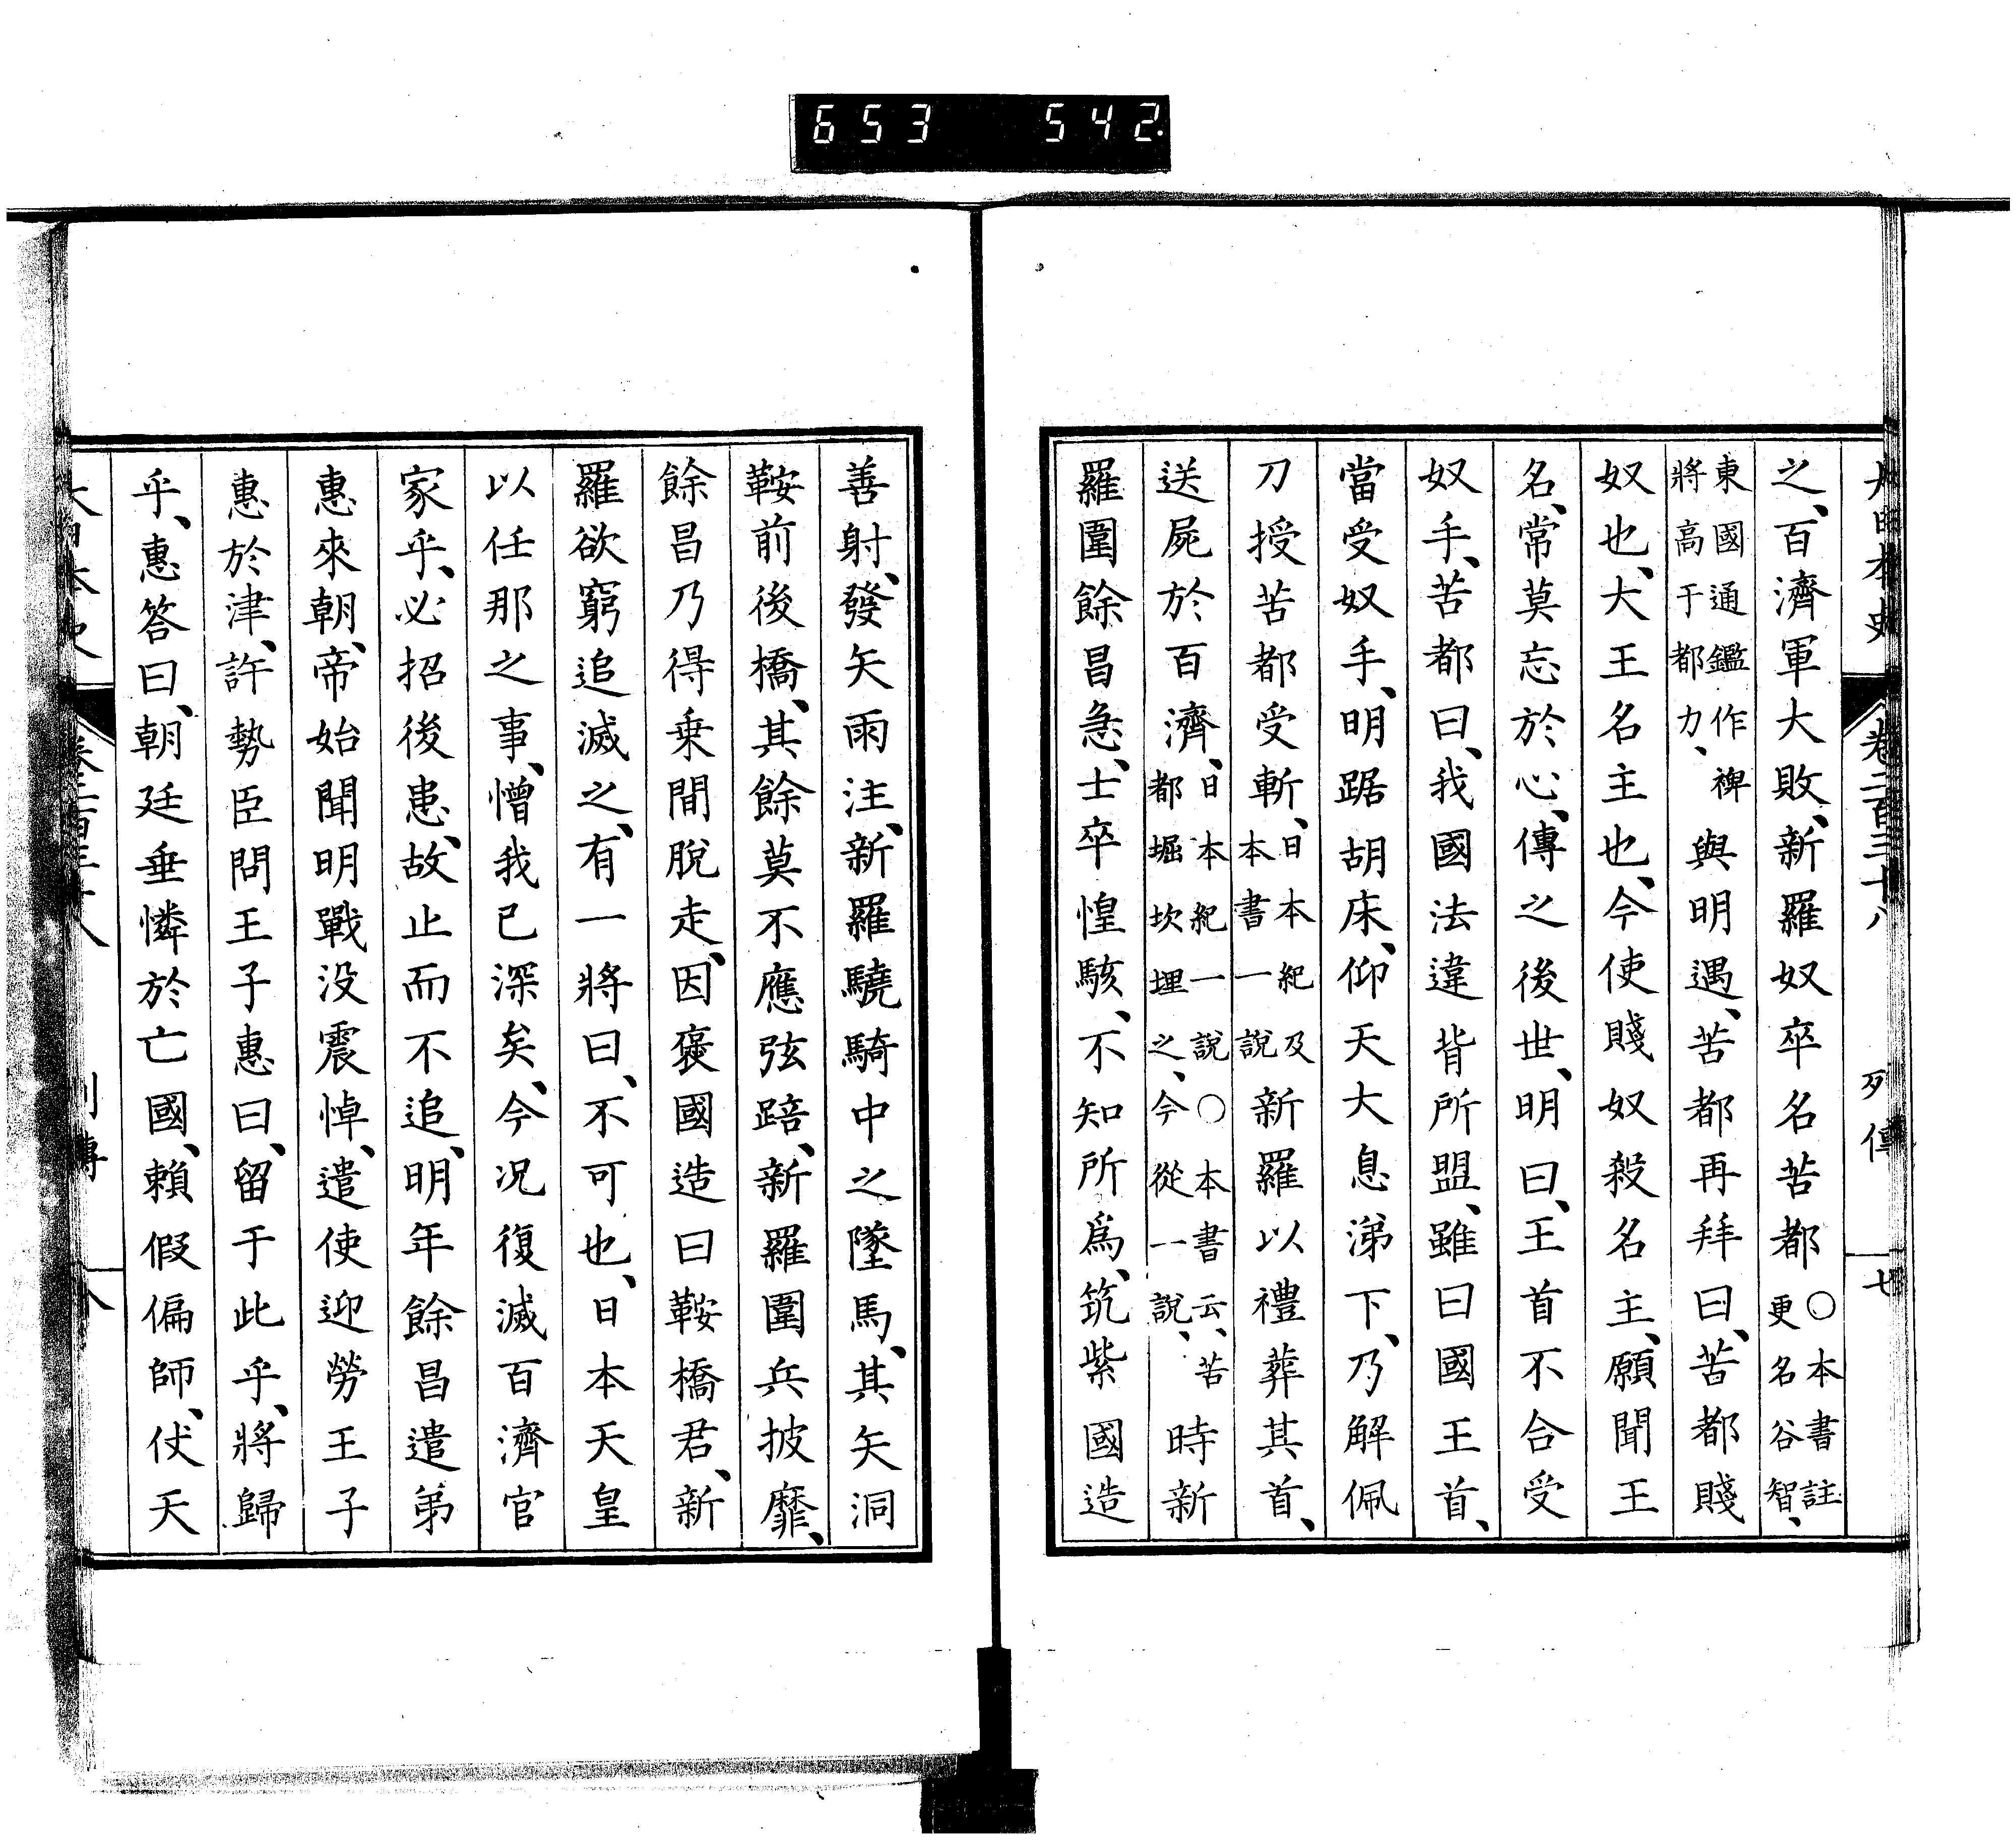 653 542.
大日本史 卷二百三十八 列傳 七
之、百濟軍大敗、新羅奴卒名苦都〇本書註更名谷智、
東國通鑑作裨將高于都力、與明遇、苦都再拜曰、苦都賤
奴也、大王名主也、今使賤奴殺名主、願聞王
名、常莫忘於心、傳之後世、明曰、王首不合受
奴手、苦都曰、我國法違背所盟、雖曰國王首、
當受奴手、明踞胡床、仰天大息涕下、乃解佩
刀授苦都受斬、日本紀及本書一說新羅以禮葬其首、
送屍於百濟、日本紀一說〇本書云、苦都堀坎埋之、今從一說、時新
羅圍餘昌急、士卒惶駭、不知所爲、筑紫國造
善射、發矢雨注、新羅驍騎中之墜馬、其矢洞
鞍前後橋、其餘莫不應弦踣、新羅圍兵披靡、
餘昌乃得乗間脫走、因褒國造曰鞍橋君、新
羅欲窮追滅之、有一將曰、不可也、日本天皇
以任那之事、憎我已深矣、今况復滅百濟官
家乎、必招後患、故止而不追、明年餘昌遣弟
惠來朝、帝始聞明戰没震悼、遣使迎勞王子
惠於津、許勢臣問王子惠曰、留于此乎、將歸
乎、惠答曰、朝廷垂憐於亡國、賴假偏師、伏天
大日本史 卷二百三十八 列傳 八